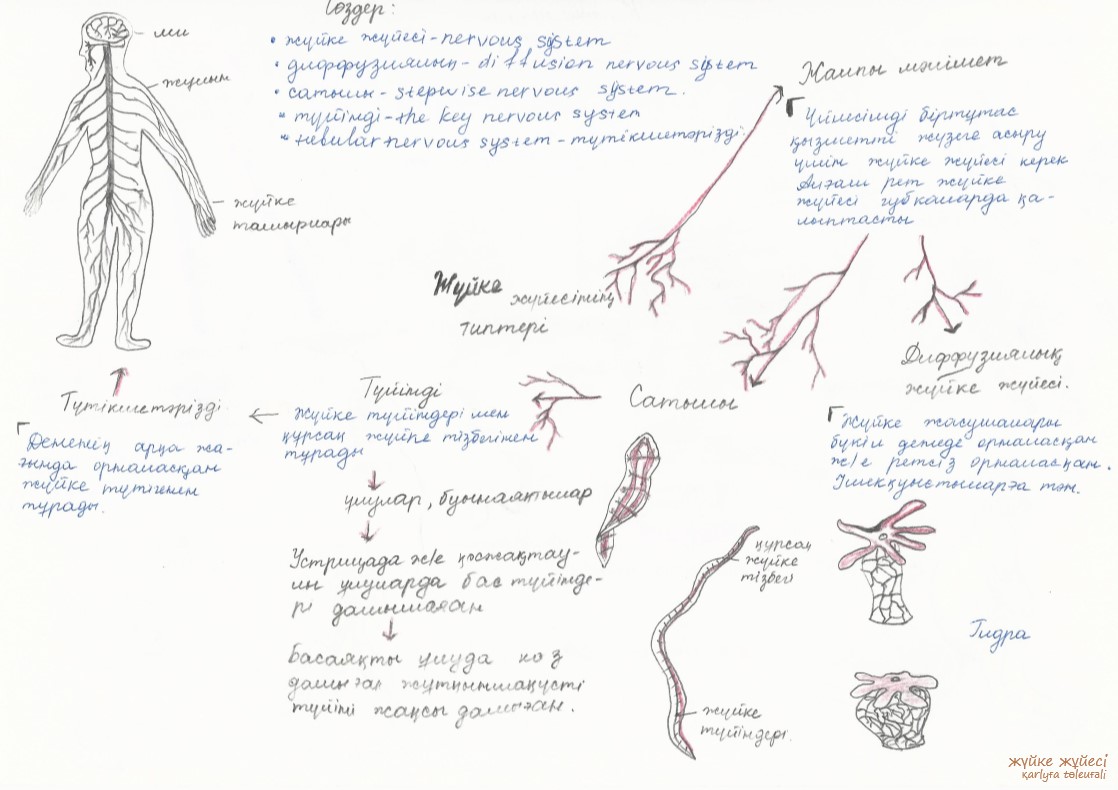 Сөздер:
• жүйке жүйесі - nervous system
• диффузиялық - diffusion nervous system
• сатылы - stepwise nervous system.
• түйінді - the key nervous system
• tubular nervous system - түтікшетәрізді
ми
жұлын
жүйке
тамырлары
Жалпы мәлімет
Үйлесімді біртұтас
қызметті жүзеге асыру
үшін жүйке жүйесі керек
Алғаш рет жүйке
жүйесі губкаларда қа-
лыптасты
Жүйке жүйесінің
типтері
Диффузиялық
жүйке жүйесі.
Жүйке жасушалары
бүкіл денеде орналасқан
ж/е ретсіз орналасқан.
Ішекқуыстыларға тән.
Гидра
Сатылы
құрсақ
жүйке
тізбегі
жүйке
түйіндері.
Түйінді
жүйке түйіндері мен
құрсақ жүйке тізбегінен
тұрады
ұлулар, буынаяқтылар
Устрицада ж/е қосжақтау-
лы ұлуларда бас түйінде-
рі дамымаған
Басаяқты ұлуда көз
дамыған жұтқыншақүсті
түйіні жақсы дамыған.
Түтікшетәрізді
Дененің арқа жа-
ғында орналасқан
жүйке түтігінен
тұрады.
жүйке жүйесі
қarlyғa tөleuғali